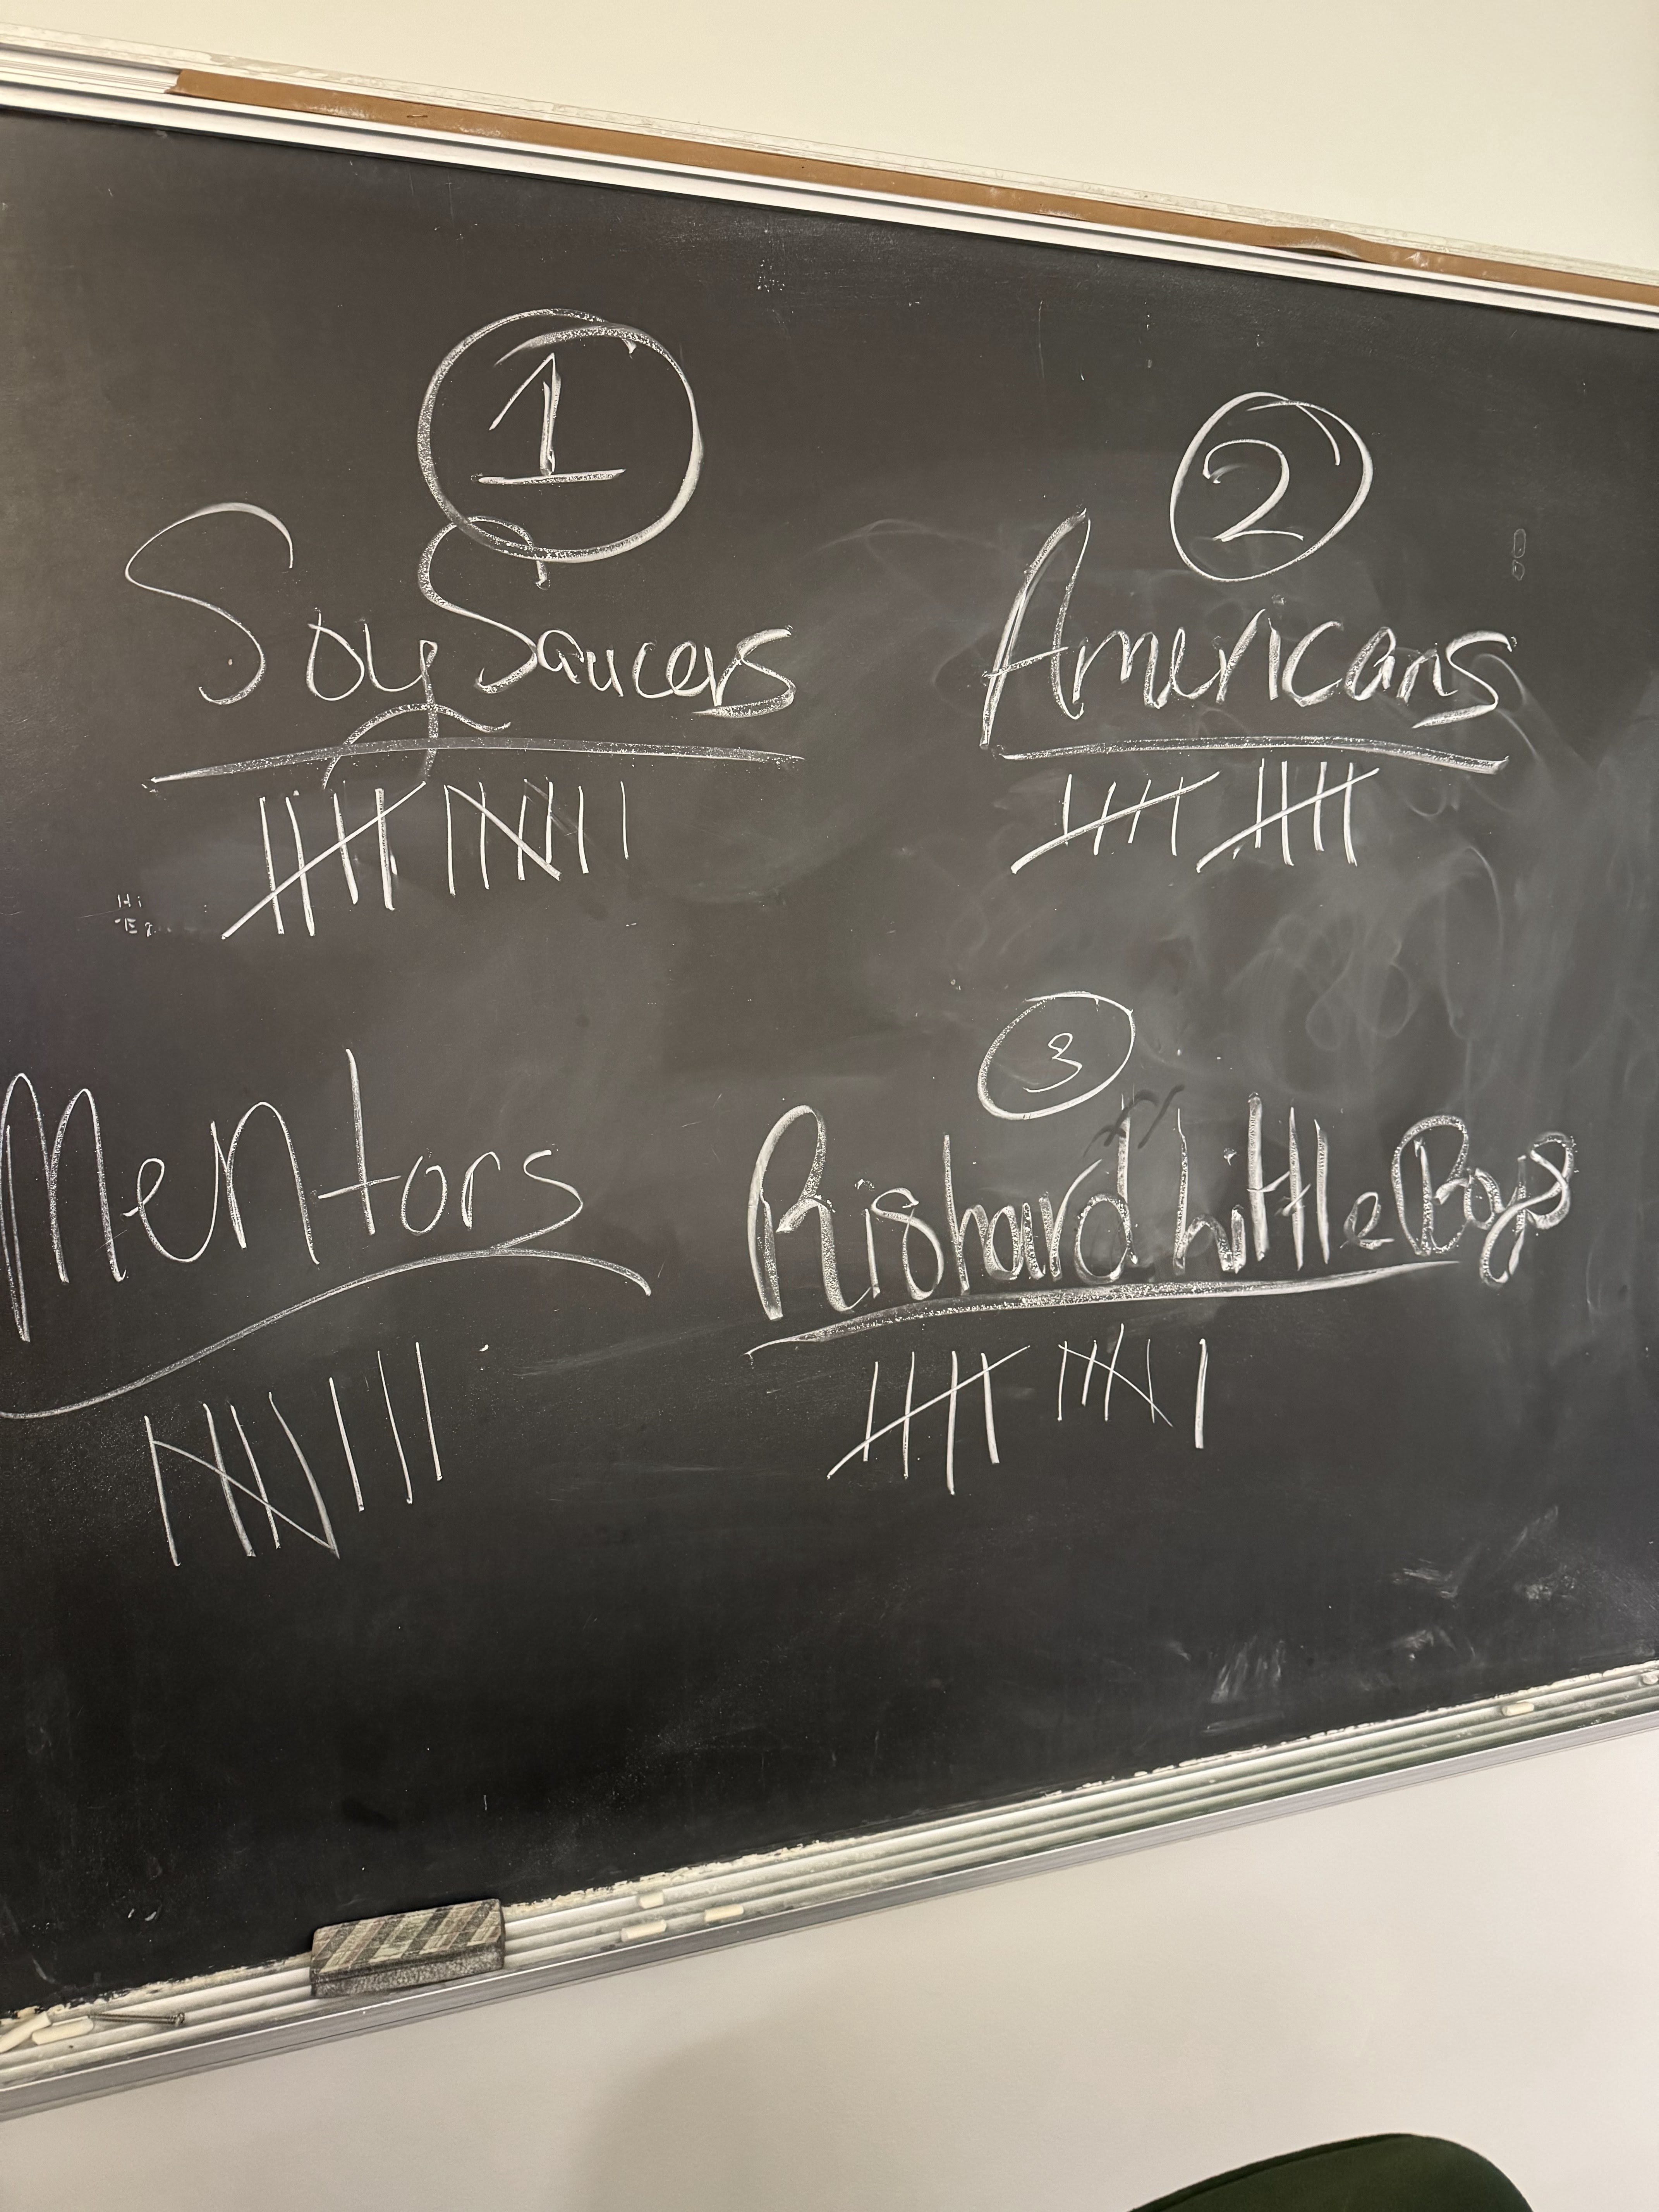 1
Soy Saucers
2
Americans
Hi
Mentors
3
Rishard little Boys